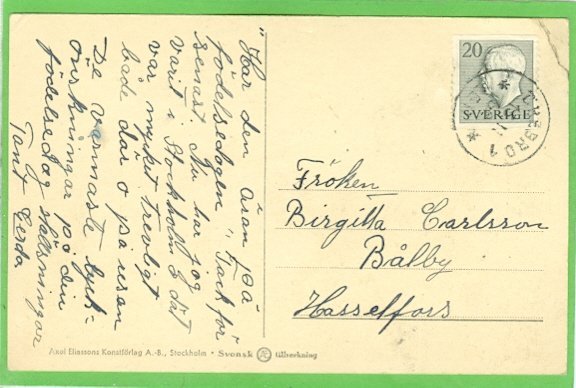 "Har den äran på
födelsedagen". Tack för
senast. Nu har jag
varit i Stockholm o det
var mycket trevligt
både där o på resan
De varmaste lyck-
önskningar på din
födelsedag o hälsningar
Tant Gerda
20
SVERIGE
ÖREBRO 1
Fröken
Birgitta Carlsson
Bålby
Hasselfors
Axel Eliassons Konstförlag A.-B., Stockholm • Svensk Æ tillverkning